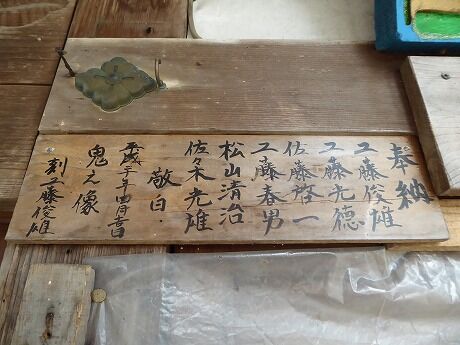 奉納
工藤俊雄
工藤光徳
佐藤啓一
工藤春男
松山清治
佐々木光雄
敬白
鬼之像
刻工藤俊雄